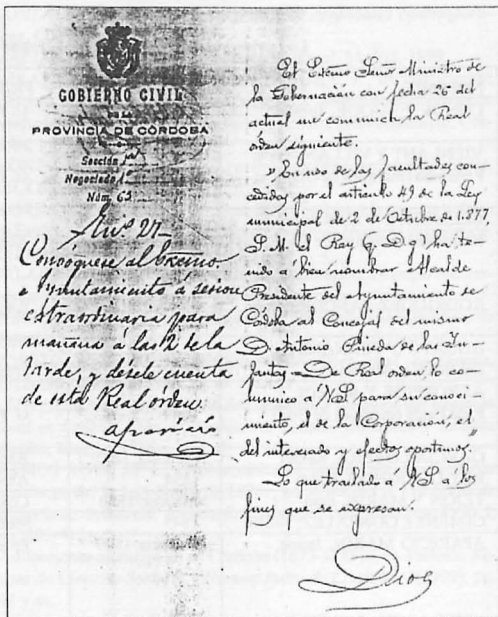 GOBIERNO CIVIL
DE LA
PROVINCIA DE CORDOBA
Sección 1ª
Negociado 1º
Núm. 63
27
Convóquese al Excmo
Ayuntamiento á sesion
extraordinaria para
mañana á las 2 de la
tarde, y désele cuenta
de esta Real órden
Aparicio
El Excmo Señor Ministro de
la Gobernación con fecha 26 del
actual me comunica la Real
órden siguiente.
"En uso de las facultades con-
cedidas por el artículo 49 de la Ley
municipal de 2 de Octubre de 1.877,
S. M. el Rey (q. D. g.) ha te-
nido á bien nombrar Alcalde
Presidente del Ayuntamiento de
Córdoba al Concejal del mismo
D. Antonio Pineda de las In-
fantas = De Real orden lo co-
munico á V.S. para su conoci-
miento, el de la Corporación, el
del interesado y efectos oportunos."
Lo que traslado á V.S. á los
fines que se expresan.